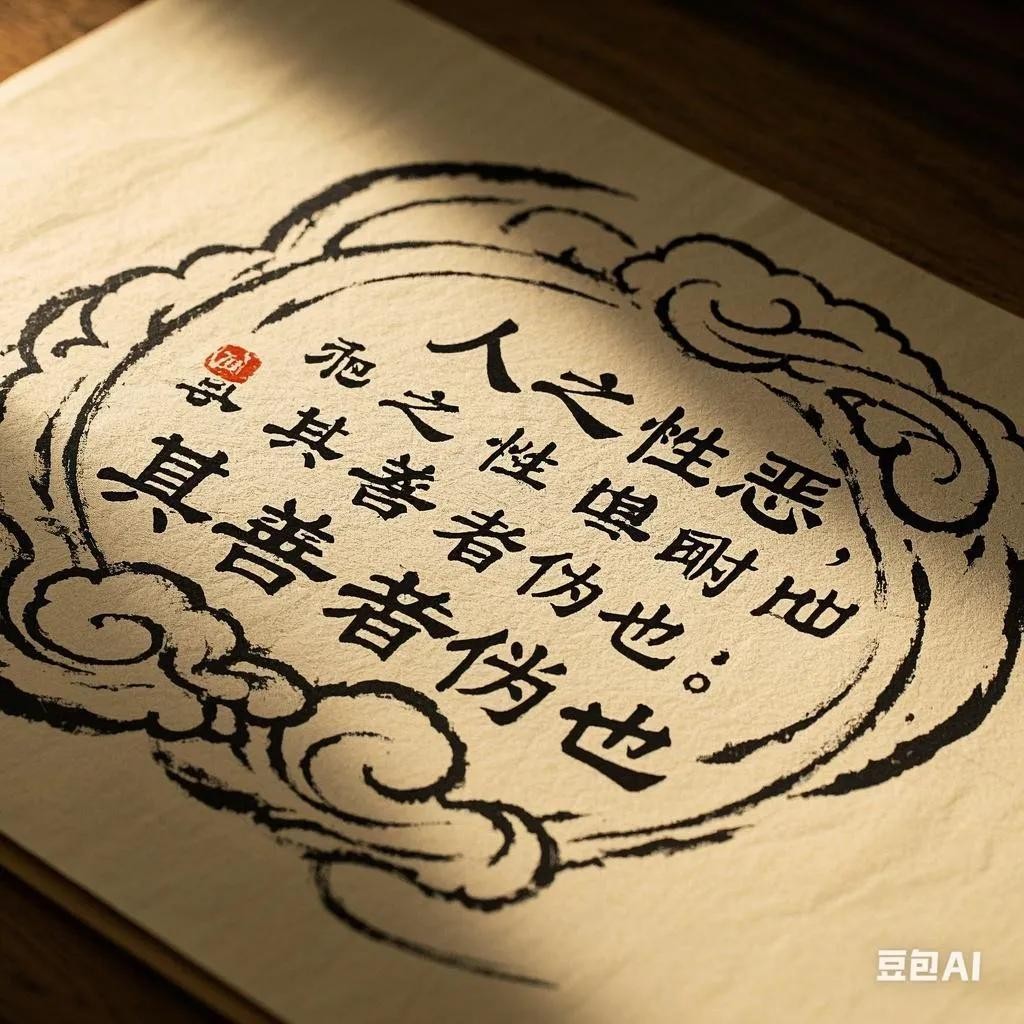 人之性恶，
之性
其善者伪也。
其善者伪也
豆包AI